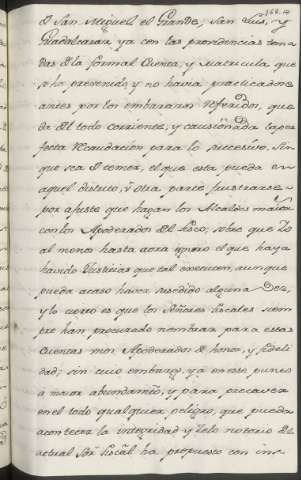 d San Miguel el Grande, San Luis, y
Guadalaxara, ya con las providencias toma
das d la formal Cuenta, y Matricula que
se ha prevenido, y no havia practicadose
antes por los embarazos referidos, que
da del todo corriente, y caucionada la per
fecta Recaudacion para lo succesivo, sin
que sea d temer, el que esta pueda en
aquel distrito, ú otra parte frustrarse
por ajuste que hagan los Alcaldes maiors
con los Apoderados del fisco, sobre que Yo
al menos hasta aora ignoro el que haya
havido Justicias que tal executen, aunque
pueda acaso haver sucedido alguna vez,
y lo cierto es que los Señores fiscales siem
pre han procurado nombrar para estas
cuentas mor Apoderados d honor, y fideli
dad; sin cuio embargo, ya en este punto
a maior abundamto, y para precaver
en el todo qualquier peligro, que pueda
acontecer la integridad y Zelo notorio del
actual Sor fiscal ha propuesto con ins